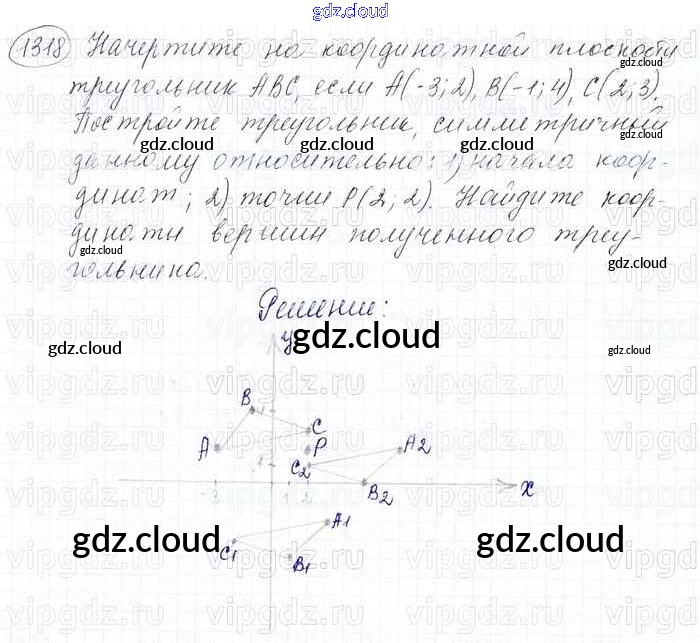 gdz.cloud
1318 Начертите на координатной плоскости
треугольник ABC, если A(-3;2), B(-1;4), C(2;3).
Постройте треугольник, симметричный
данному относительно: 1) начала коор-
динат; 2) точки P(2;2). Найдите коор-
динаты вершин полученного треу-
гольника.
Решение:
y
B
4
C
A
P
A2
1
C2
-3
1
2
B2
x
A1
C1
B1
gdz.cloud
gdz.cloud
gdz.cloud
gdz.cloud
gdz.cloud
gdz.cloud
gdz.cloud
gdz.cloud
gdz.cloud
gdz.cloud
vipgdz.ru